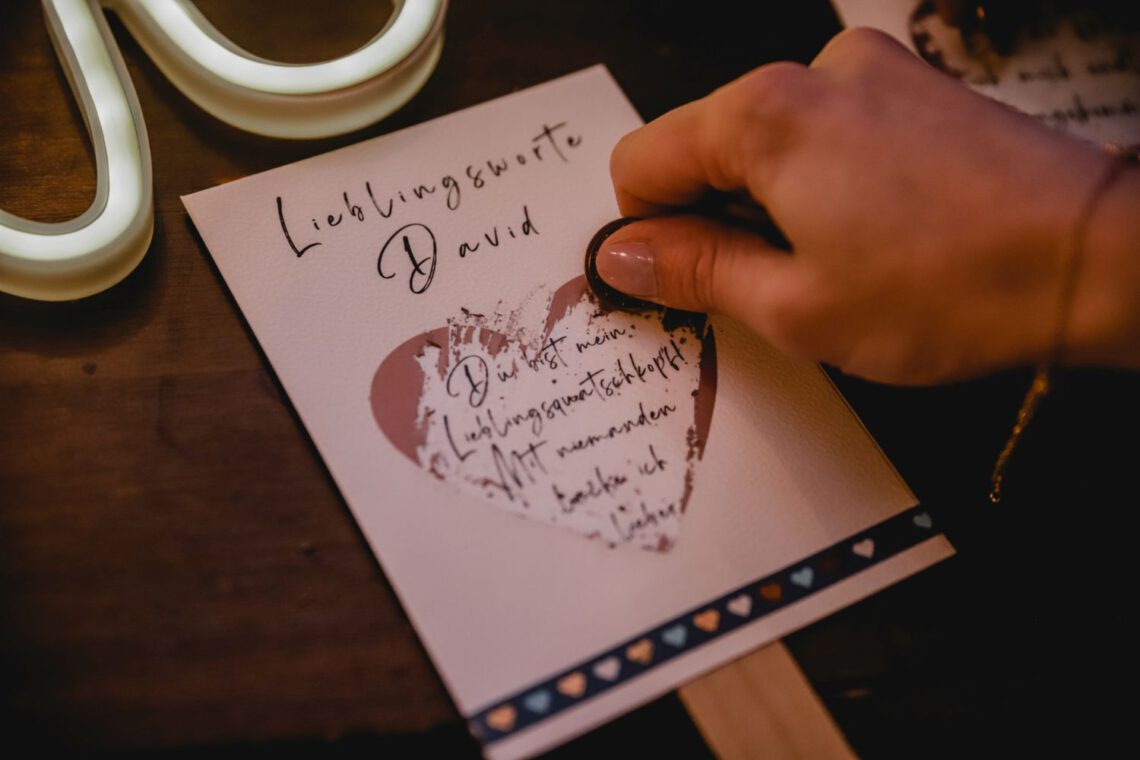 Lieblingsworte
David
Du bist mein
Lieblingsquatschkopf!
Mit niemanden
lache ich
lieber